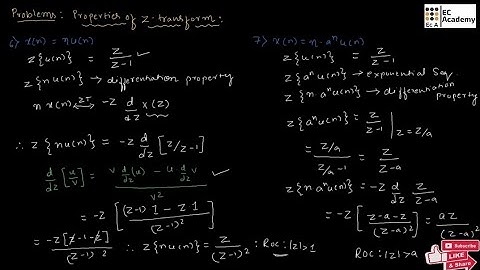 Problems: Properties of Z-transform:
EC
Academy
EC A
6) x(n) = nu(n)
z{u(n)} = z/z-1 ✓
z{nu(n)} → differentiation property
n x(n) ⟷ZT -z d/dz X(z)
∴ z{nu(n)} = -z d/dz [z/z-1]
d/dz [u/v] = v d/dz(u) - u d/dz v / v² ✓
= -z [(z-1) 1 - z·1 / (z-1)²]
= -z[z-1-z] / (z-1)² ∴ z{nu(n)} = z/(z-1)² ; ROC: |z|>1
7) x(n) = n·aⁿu(n)
z{u(n)} = z/z-1
z{aⁿu(n)} → exponential Seq.
z{n·aⁿu(n)} → differentiation property
z{aⁿu(n)} = z/z-1 | z=z/a
= z/a / z/a -1 = z/z-a
z{n aⁿu(n)} = -z d/dz z/z-a
= -z [z-a-z/(z-a)²] = az/(z-a)²
ROC: |z|>a
SUBSCRIBE
LIKE
& Share